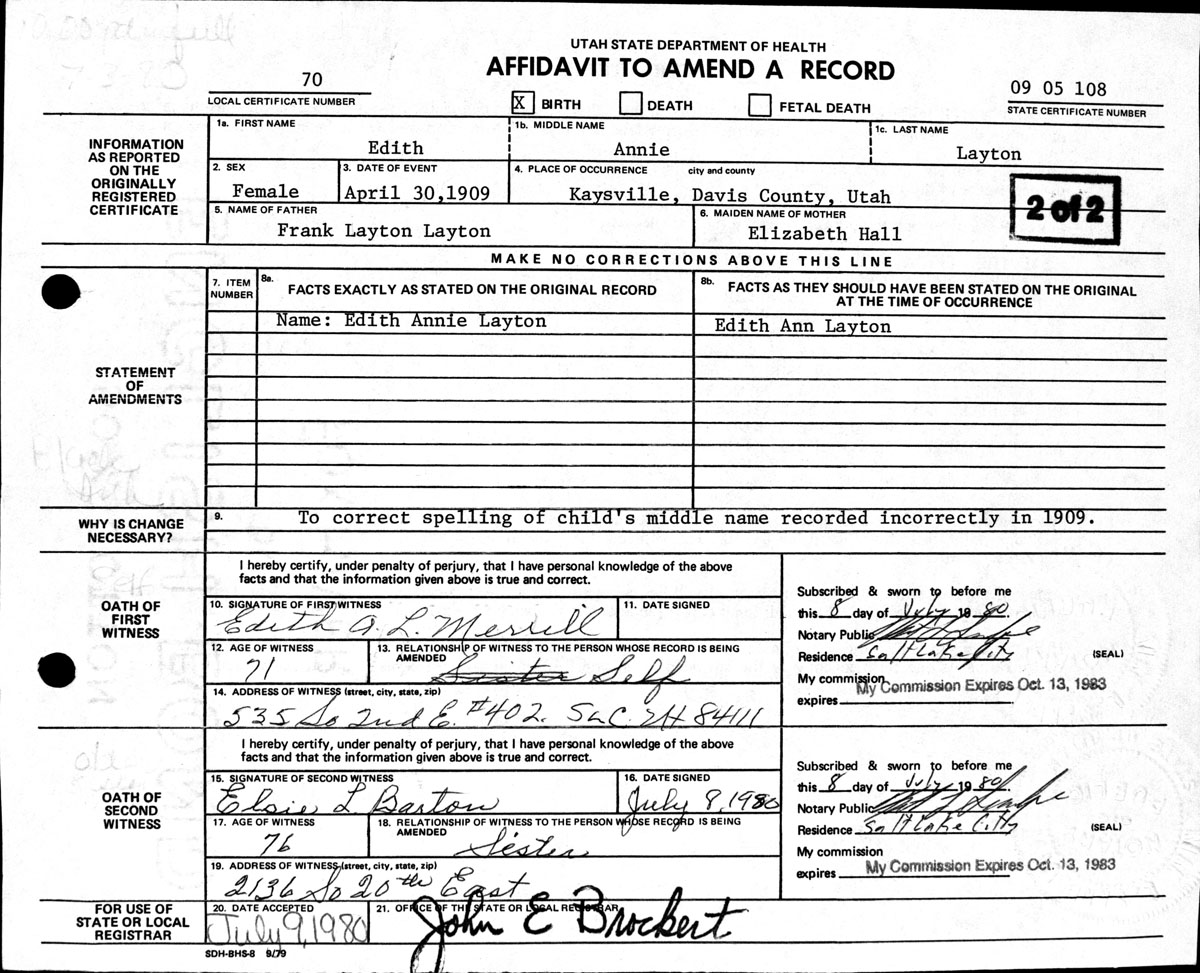 UTAH STATE DEPARTMENT OF HEALTH
AFFIDAVIT TO AMEND A RECORD
70
LOCAL CERTIFICATE NUMBER
X BIRTH DEATH FETAL DEATH
09 05 108
STATE CERTIFICATE NUMBER
INFORMATION AS REPORTED ON THE ORIGINALLY REGISTERED CERTIFICATE
1a. FIRST NAME 1b. MIDDLE NAME 1c. LAST NAME
Edith Annie Layton
2. SEX 3. DATE OF EVENT 4. PLACE OF OCCURRENCE city and county
Female April 30,1909 Kaysville, Davis County, Utah
2 of 2
5. NAME OF FATHER 6. MAIDEN NAME OF MOTHER
Frank Layton Layton Elizabeth Hall
MAKE NO CORRECTIONS ABOVE THIS LINE
STATEMENT OF AMENDMENTS
7. ITEM NUMBER
8a. FACTS EXACTLY AS STATED ON THE ORIGINAL RECORD
8b. FACTS AS THEY SHOULD HAVE BEEN STATED ON THE ORIGINAL AT THE TIME OF OCCURRENCE
Name: Edith Annie Layton Edith Ann Layton
WHY IS CHANGE NECESSARY?
9. To correct spelling of child's middle name recorded incorrectly in 1909.
OATH OF FIRST WITNESS
I hereby certify, under penalty of perjury, that I have personal knowledge of the above
facts and that the information given above is true and correct.
10. SIGNATURE OF FIRST WITNESS 11. DATE SIGNED
Edith A. L. Merrill
12. AGE OF WITNESS 13. RELATIONSHIP OF WITNESS TO THE PERSON WHOSE RECORD IS BEING AMENDED
71 Sister Self
14. ADDRESS OF WITNESS (street, city, state, zip)
535 So 2nd E. #402. SLC. UH 84111
Subscribed & sworn to before me
this 8 day of July 1980.
Notary Public
Residence Salt Lake City (SEAL)
My commission
expires My Commission Expires Oct. 13, 1983
OATH OF SECOND WITNESS
I hereby certify, under penalty of perjury, that I have personal knowledge of the above
facts and that the information given above is true and correct.
15. SIGNATURE OF SECOND WITNESS 16. DATE SIGNED
Elsie L Barton July 8, 1980
17. AGE OF WITNESS 18. RELATIONSHIP OF WITNESS TO THE PERSON WHOSE RECORD IS BEING AMENDED
76 Sister
19. ADDRESS OF WITNESS (street, city, state, zip)
2136 So 20th East
Subscribed & sworn to before me
this 8 day of July 1980.
Notary Public
Residence Salt Lake City (SEAL)
My commission
expires My Commission Expires Oct. 13, 1983
FOR USE OF STATE OR LOCAL REGISTRAR
20. DATE ACCEPTED 21. OFFICE OF THE STATE OR LOCAL REGISTRAR
July 9, 1980 John E Brockert
SDH-BHS-8 9/79